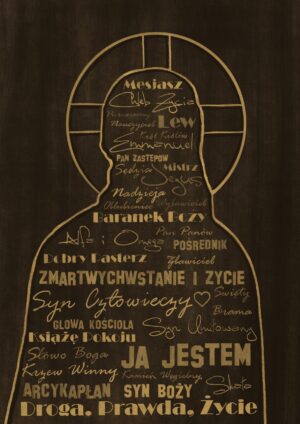 Mesjasz
Chleb Życia
Nauczyciel Lew
Król Królów
Emmanuel
PAN ZASTĘPÓW
Sędzia Mistrz
Jezus
Nadzieja
Oblubieniec Wyzwoliciel
Baranek Boży
Alfa i Omega Pan Panów
POŚREDNIK
Dobry Pasterz Zbawiciel
ZMARTWYCHWSTANIE I ŻYCIE
Syn Człowieczy Święty
Brama
GŁOWA KOŚCIOŁA Syn Umiłowany
Książę Pokoju
Słowo Boga JA JESTEM
Krzew Winny Kamień Węgielny
ARCYKAPŁAN SYN BOŻY Skała
Droga, Prawda, Życie